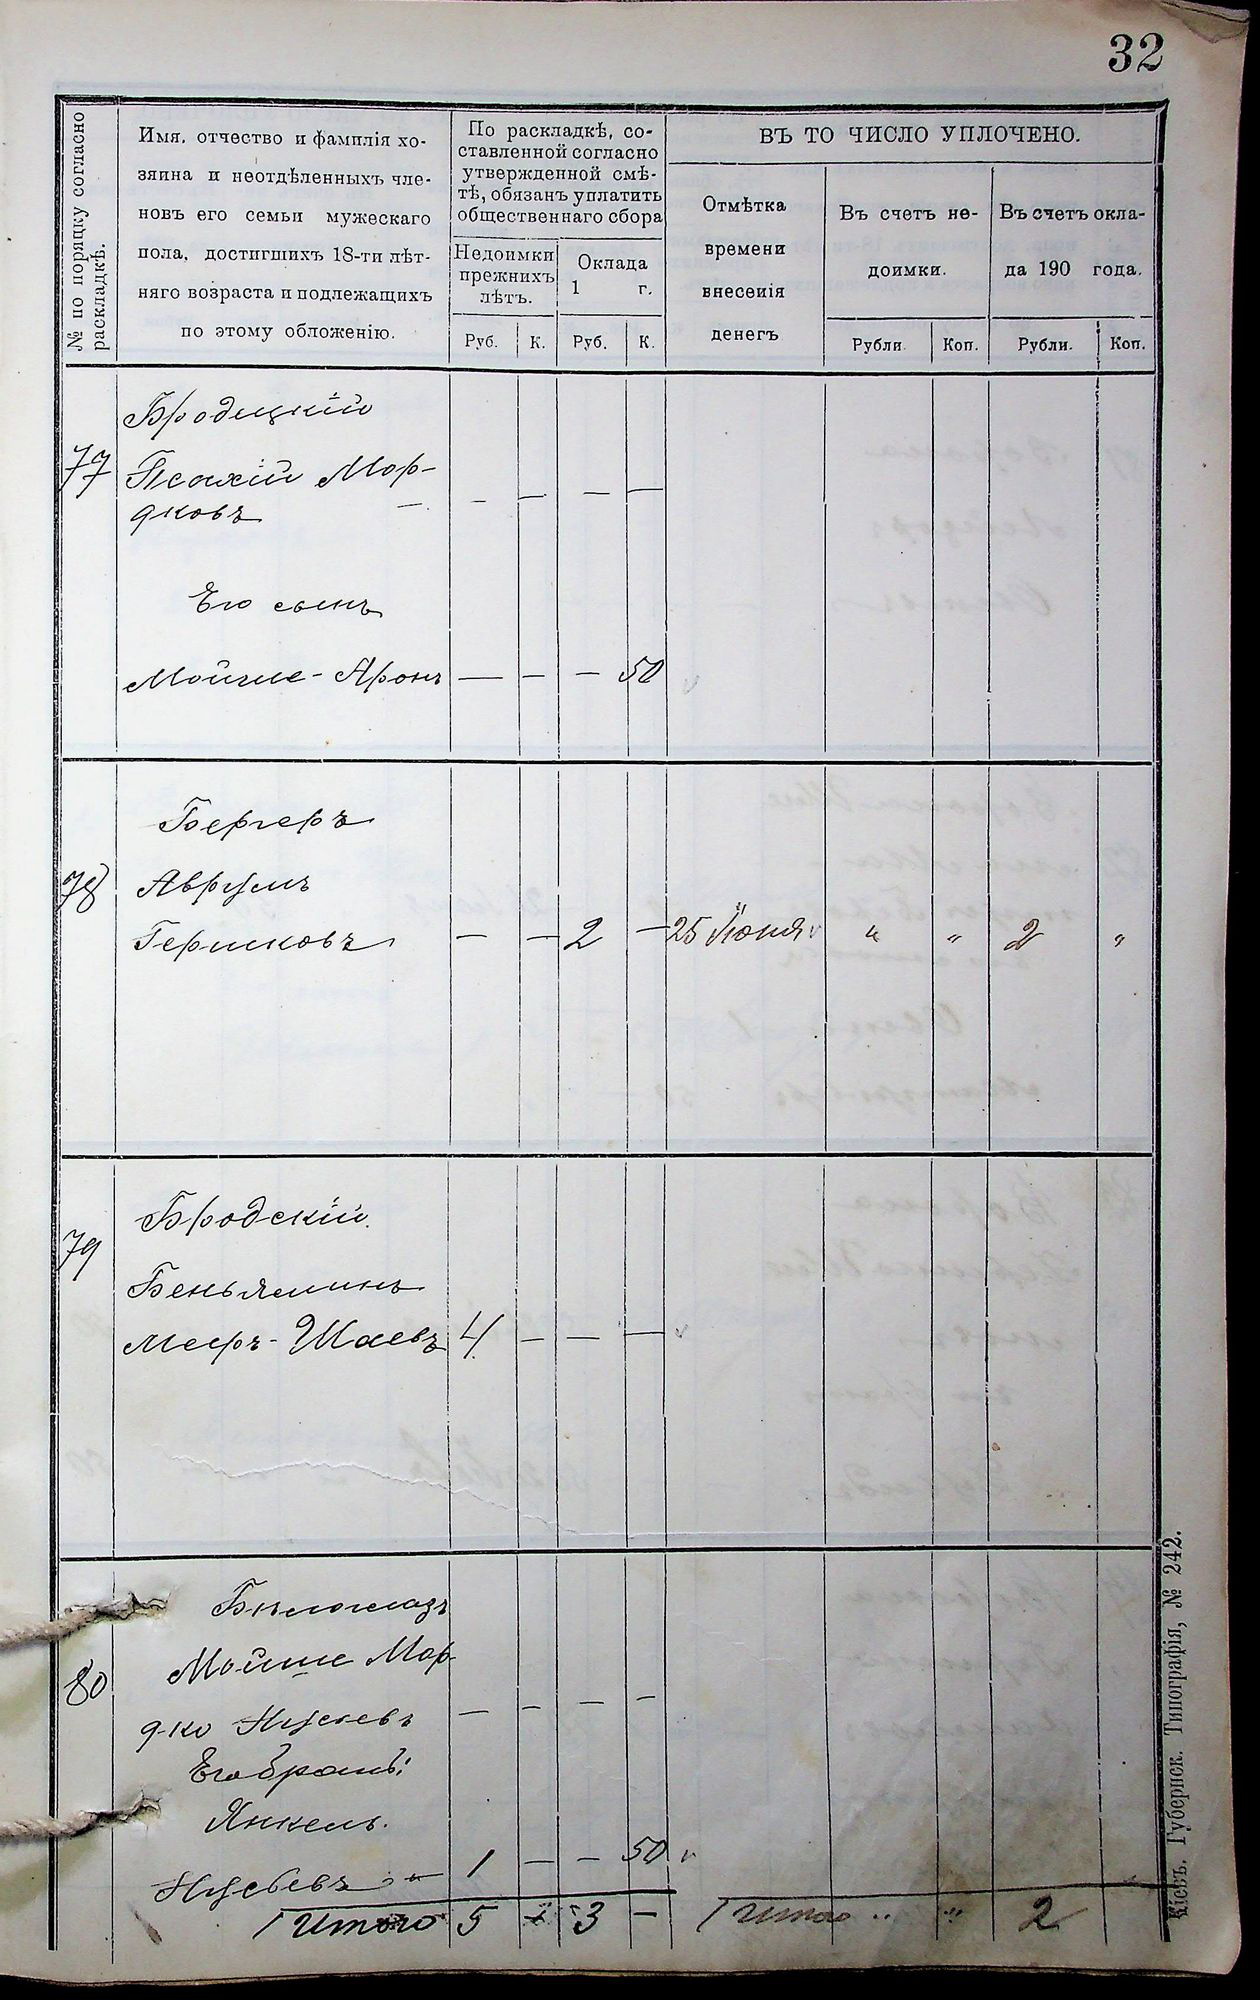 32
№ по порядку согласно
раскладкѣ.
Имя, отчество и фамилія хо-
зяина и неотдѣленныхъ чле-
новъ его семьи мужескаго
пола, достигшихъ 18-ти лѣт-
няго возраста и подлежащихъ
по этому обложенію.
По раскладкѣ, со-
ставленной согласно
утвержденной смѣ-
тѣ, обязанъ уплатить
общественнаго сбора
Недоимки
прежнихъ
лѣтъ.
Оклада
1 г.
Руб. К. Руб. К.
ВЪ ТО ЧИСЛО УПЛОЧЕНО.
Отмѣтка
времени
внесенія
денегъ
Въ счетъ не-
доимки.
Въ счетъ окла-
да 190 года.
Рубли. Коп. Рубли. Коп.
Бродецкій
77 Псахій Мор-
дковъ — — — —
Его сынъ
Мойше-Аронъ — — — 50
Бергеръ
78 Аврумъ
Гершковъ — — 2 — 25 Іюня " " 2 "
Бродскій
79
Беньяминъ
Мееръ-Шаевъ 4 — — —
Мойше Мор-
80
дко — — — —
Его братъ:
Янкель
1 — — 50
Итого 5 3 — Итого " " 2
Кіевъ. Губернск. Типографія, № 242.